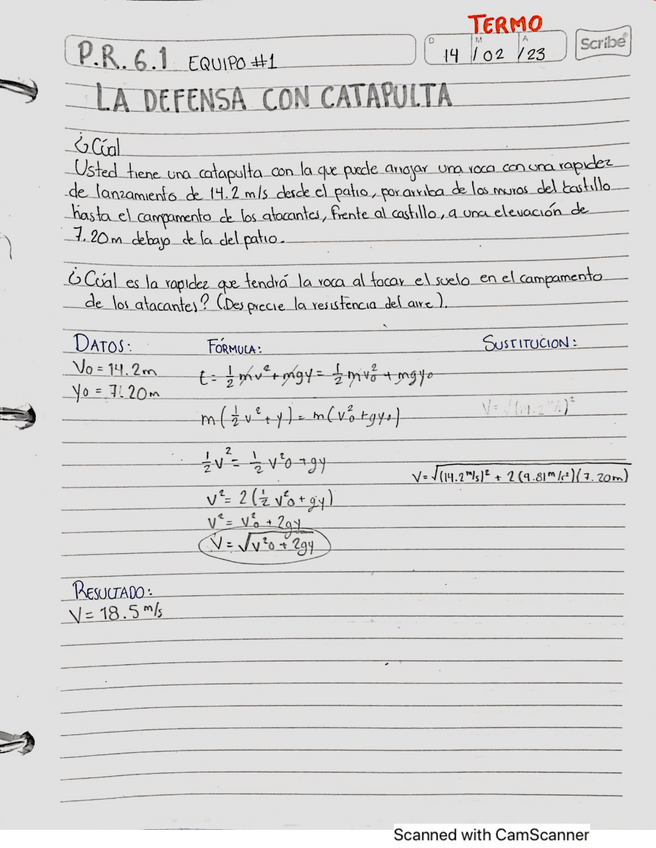 TERMO
P.R. 6.1 EQUIPO #1
D M A
14 / 02 / 23
Scribe
LA DEFENSA CON CATAPULTA
¿Cúal
Usted tiene una catapulta con la que puede arrojar una roca con una rapidez
de lanzamiento de 14.2 m/s desde el patio, por arriba de los muros del castillo
hasta el campamento de los atacantes, frente al castillo, a una elevación de
7.20m debajo de la del patio.
¿Cúal es la rapidez que tendrá la roca al tocar el suelo en el campamento
de los atacantes? (Desprecie la resistencia del aire).
DATOS:
Vo = 14.2m
yo = 7.20m
FÓRMULA:
E = 1/2 mv² + mgy = 1/2 mv₀² + mgyo
m(1/2 v² + y) = m(v₀² + gyo)
1/2 v² = 1/2 v²o + gy
v² = 2(1/2 v²o + gy)
v² = v²o + 2gy
V = √v²o + 2gy
SUSTITUCION:
V = √(14.2 m/s)² + 2(9.81 m/s²)(7.20m)
RESULTADO:
V = 18.5 m/s
Scanned with CamScanner